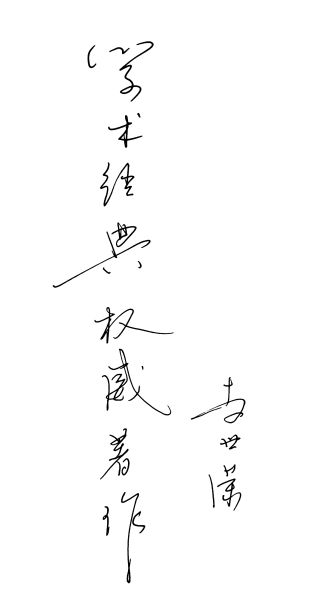 学术经典权威著作
李世濂